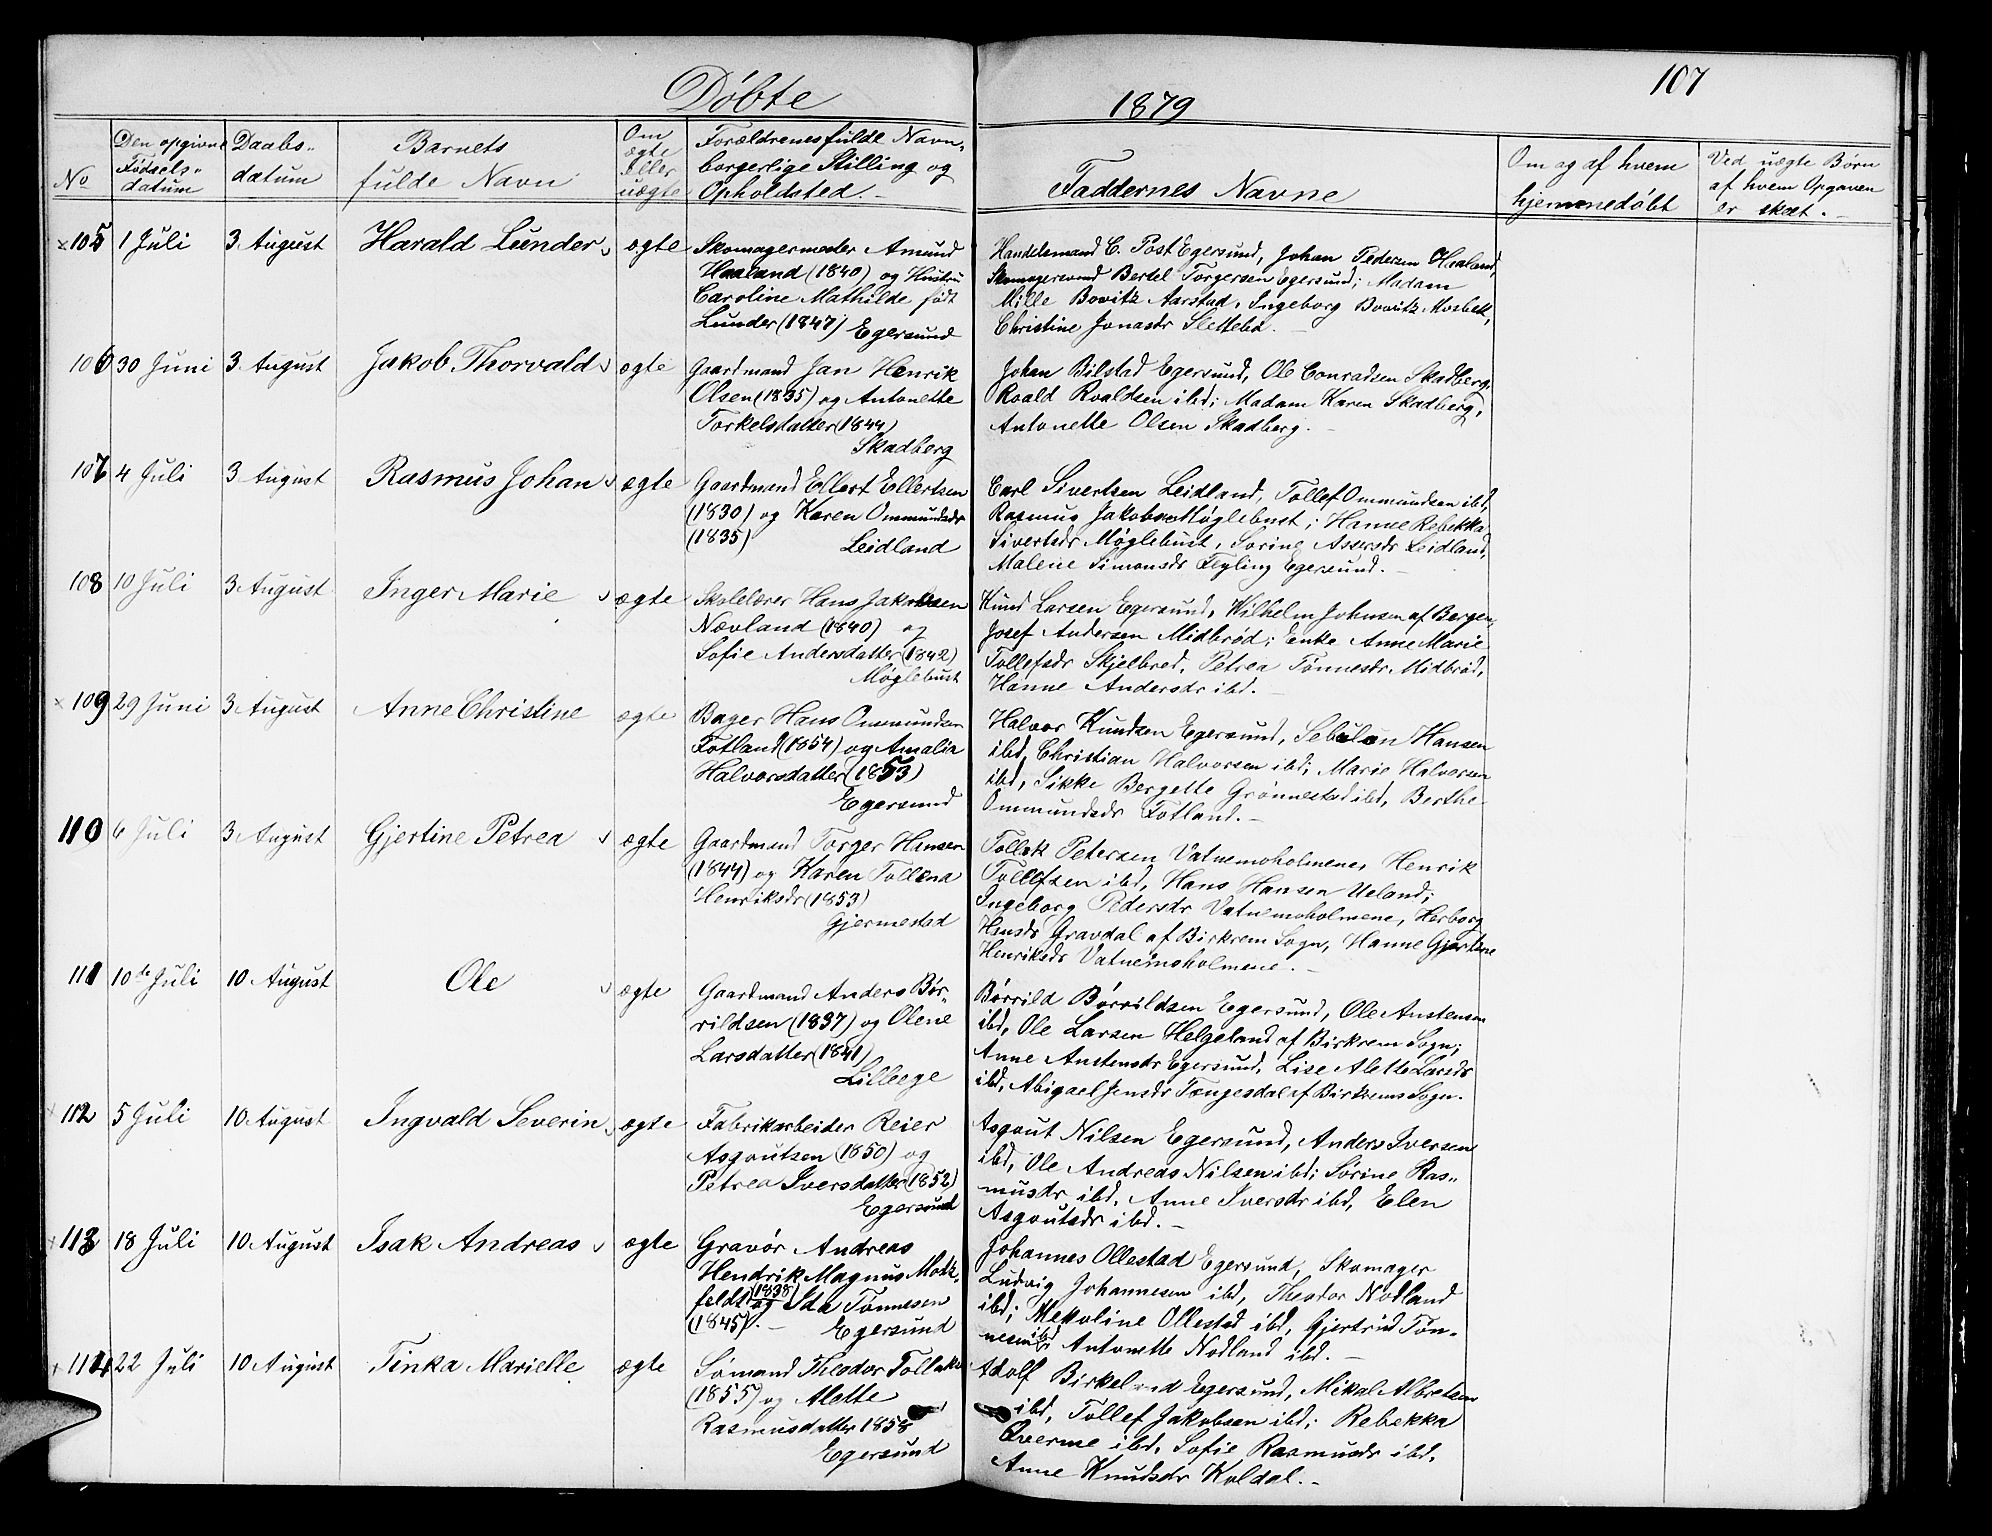 Døbte
1879
107
No
Den opgivne Fødsels- datum
Daabs- datum
Barnets fulde Navn
Om ægte eller uægte
Forældrenes fulde Navn, borgerlige Stilling og Opholdsted.
Faddernes Navne
Om og af hvem hjemmedøbt
Ved uægte Børn af hvem Opgaven er skæt.
105 1 Juli 3 August Harald Lunder ægte
Skomagermester Amund
Haaland (1840) og Hustru
Caroline Mathilde født
Lunder (1847) Egersund
Handelsmand C. Post Egersund, Johan Pedersen Haaland,
Skomagersvend Bertel Torgersen Egersund; Madam
Mille Bovitz Aarstad, Ingeborg Bovitz Mosbek,
Christine Jonasdr Slettebø.
106 30 Juni 3 August Jakob Thorvald ægte
Gaardmand Jan Henrik
Olsen (1835) og Antonette
Torkelsdatter (1844)
Skadberg
Johan Bilstad Egersund, Ole Conradsen Skadberg,
Roald Roaldsen ibd; Madam Karen Skadberg,
Antonette Olsen Skadberg.
107 4 Juli 3 August Rasmus Johan ægte
Gaardmand Ellert Ellertsen
(1830) og Karen Ommundsdr
(1835) Leidland
Carl Sivertsen Leidland, Tollef Ommundsen ibd,
Rasmus Jakobsen Møglebust; Hanne Rebekka
Sivertsdr Møglebust, Sorine Assersdr Leidland,
Malene Simonsdr Flyling Egersund.
108 10 Juli 3 August Inger Marie ægte
Skolelærer Hans Jakobsen
Nævland (1840) og
Sofie Andersdatter (1842)
Møglebust
Knud Larsen Egersund, Wilhelm Johnsen af Bergen,
Josef Andersen Midbrød; Enke Anne Marie
Tollefsdr Skjelbred, Petrea Tønnesdr Midbrød,
Hanne Andersdr ibd.
109 29 Juni 3 August Anne Christine ægte
Bager Hans Ommundsen
Fotland (1854) og Amalia
Halvorsdatter (1853)
Egersund
Halvor Knudsen Egersund, Sebulon Hansen
ibd, Christian Halvorsen ibd; Marie Halvorsen
ibd, Sikke Bergette Grønnestad ibd, Berthe
Ommundsdr Fotland.
110 6 Juli 3 August Gjertine Petrea ægte
Gaardmand Torger Hansen
(1844) og Karen Tollena
Henriksdr (1853)
Gjermestad
Tollak Petersen Vatnemoholmene, Henrik
Tollefsen ibd, Hans Hansen Ueland;
Ingeborg Pedersdr Vatnemoholmene, Herborg
Hansdr Gravdal af Birkrem Sogn, Hanne Gjertine
Henriksdr Vatnemoholmene.
111 10de Juli 10 August Ole ægte
Gaardmand Anders Bør-
rildsen (1837) og Olene
Larsdatter (1841)
Lilleege
Børrild Børrildsen Egersund, Ole Austensen
ibd, Ole Larsen Helgeland af Birkrem Sogn;
Anne Austensdr Egersund, Lise Alette Larsdr
ibd, Abigael Jensdr Tengesdal af Birkrems Sogn.
112 5 Juli 10 August Ingvald Severin ægte
Fabrikarbeider Reier
Asgoutsen (1850) og
Petrea Iversdatter (1852)
Egersund
Asgout Nilsen Egersund, Anders Iversen
ibd, Ole Andreas Nilsen ibd; Sørine Ras-
musdr ibd, Anne Iversdr ibd, Elen
Asgoutsdr ibd.
113 18 Juli 10 August Isak Andreas ægte
Gravør Andreas
Hendrik Magnus Motz-
feldt (1838) og Ida Tønnesen
(1845). Egersund
Johannes Ollestad Egersund, Skomager
Ludvig Johannesen ibd, Theodor Nodland
ibd; Mekoline Ollestad ibd, Gjertrud Tøn-
nesen ibd Antonette Nodland ibd.
114 22 Juli 10 August Tinka Marielle ægte
Sømand Theodor Tollaks.
(1855) og Alette
Rasmusdatter 1858
Egersund
Adolf Birkeland Egersund, Mikal Albretsen
ibd, Tollef Jakobsen ibd; Rebekka
Qverme ibd, Sofie Rasmusdr ibd,
Anne Knudsdr Koldal.